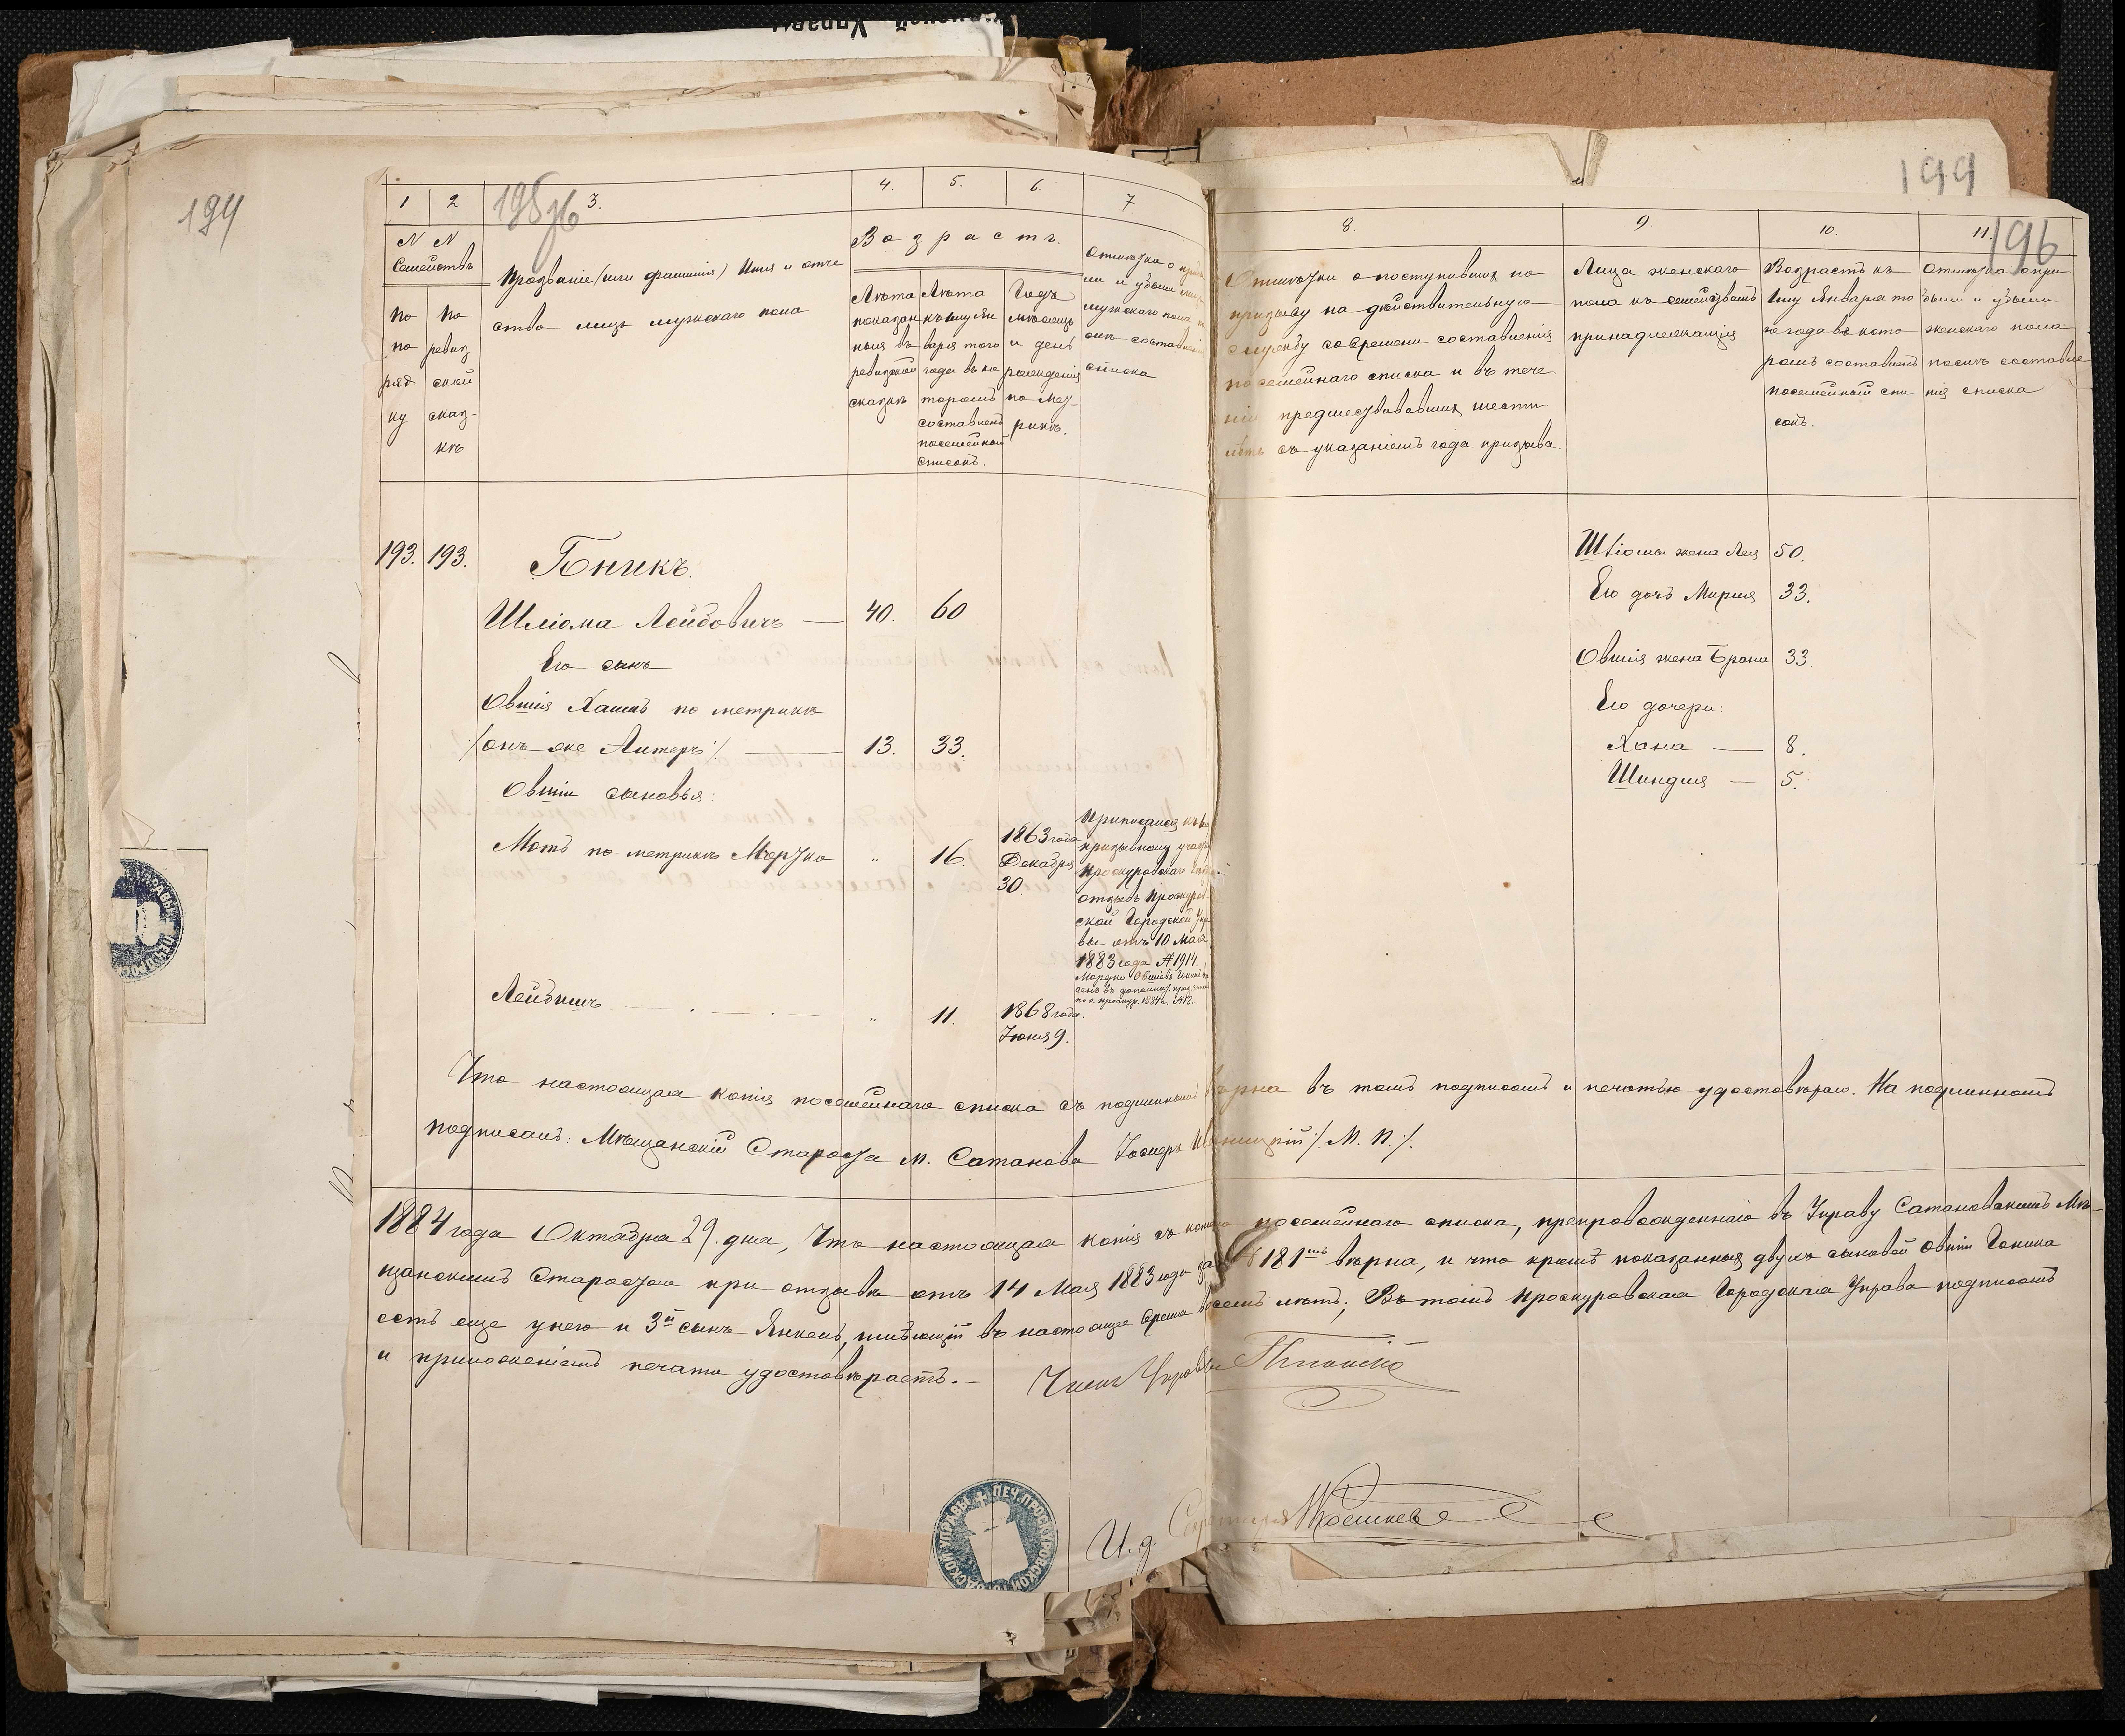 194
195 об
199
196
1
2
3.
4.
5.
6.
7
8.
9.
10.
11.
N N
Семействъ
По
по
ряд
ку
По
ревиз
ской
сказ-
кѣ
Прозваніе (или фамилія) Имя и отче
ство лицъ мужскаго пола
Возрастъ.
Лѣта
показан
ныя въ
ревизской
сказкѣ
Лѣта
къ 1му Ян
варя того
года въ ко
торомъ
составленъ
посемейный
списокъ.
Годъ
мѣсяцъ
и день
рожденія
по Мет-
рикѣ.
Отмѣтка о
ли и убыли
мужскаго пола
списка
Отмѣтки о поступившихъ по
призыву на действительную
службу со времени составленія
посемейнаго списка и въ тече
ніи предшествовавшихъ шести
лѣтъ съ указаніемъ года призыва.
Лица женскаго
пола къ семействамъ
принадлежащія
Возрастъ къ
1му Января то
го года въ кото
ромъ составленъ
посемейный спи
сокъ.
Отмѣтка о при
были и убыли
женскаго пола
послѣ составле
нія списка
193. 193.
Гоникъ.
Шліома Лейбовичъ — 40. 60
Его сынъ
Овшія Хаимъ по метрикѣ
/онъ же Альтеръ/ — 13. 33.
Овшіи сыновья:
Мотъ по метрикѣ Мортко " 16. 1863 года
Декабря
30.
Приписался къ
призывному участ
Проскуровскаго
отзывъ Проскуров
ской Городской Упра
вы отъ 10 Мая
1883 года № 1914.
Лейбишъ — " 11. 1868 года.
Іюня 9.
Шліомы жена Лея 50.
Его дочь Мирля 33.
Овшія жена Брана 33.
Его дочери:
Хана — 8.
Шиндля — 5.
Что настоящая копія посемейнаго списка съ подлиннымъ вѣрна въ томъ подписомъ и печатью удостовѣряю. На подлинномъ
подписалъ: Мѣщанскій Староста м. Сатанова Іосифъ /. М. П. /.
1884 года Октября 29. дня, Что настоящая копія съ копіи посемейнаго списка, препровожденнаго въ Управу Сатановскимъ Мѣ-
щанскимъ Старостою при отзывѣ отъ 14 Мая 1883 года за № 181мъ вѣрна, и что кромѣ показанныхъ двухъ сыновей Овшіи Гоника
есть еще у него и 3й сынъ Янкель, имѣющій въ настоящее время восемь лѣтъ; Въ томъ Проскуровская Городская Управа подписомъ
и приложеніемъ печати удостовѣряетъ. —
Членъ Управы
И. д. Секретаря
ПЕЧ. ПРОСКУРОВСКОЙ ГОРОДСКОЙ УПРАВЫ